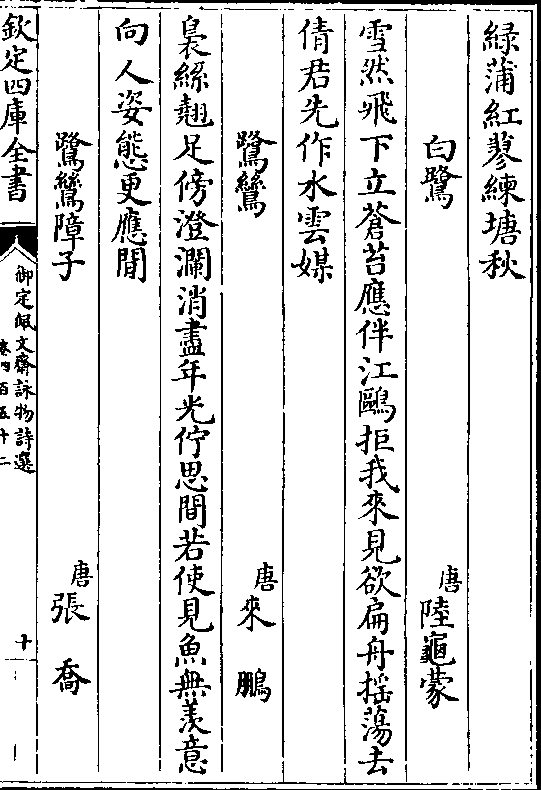 緑蒲紅蓼練塘秋
白鷺
唐陸龜蒙
雪然飛下立蒼苔應伴江鷗拒我來見欲扁舟揺蕩去
倩君先作水雲媒
鷺鷥
唐來鵬
裊絲翹足傍澄瀾消盡年光佇思間若使見魚無羡意
向人姿態更應閒
鷺鷥障子
唐張喬
欽定四庫全書
御定佩文齋詠物詩選
卷四百五十二
十